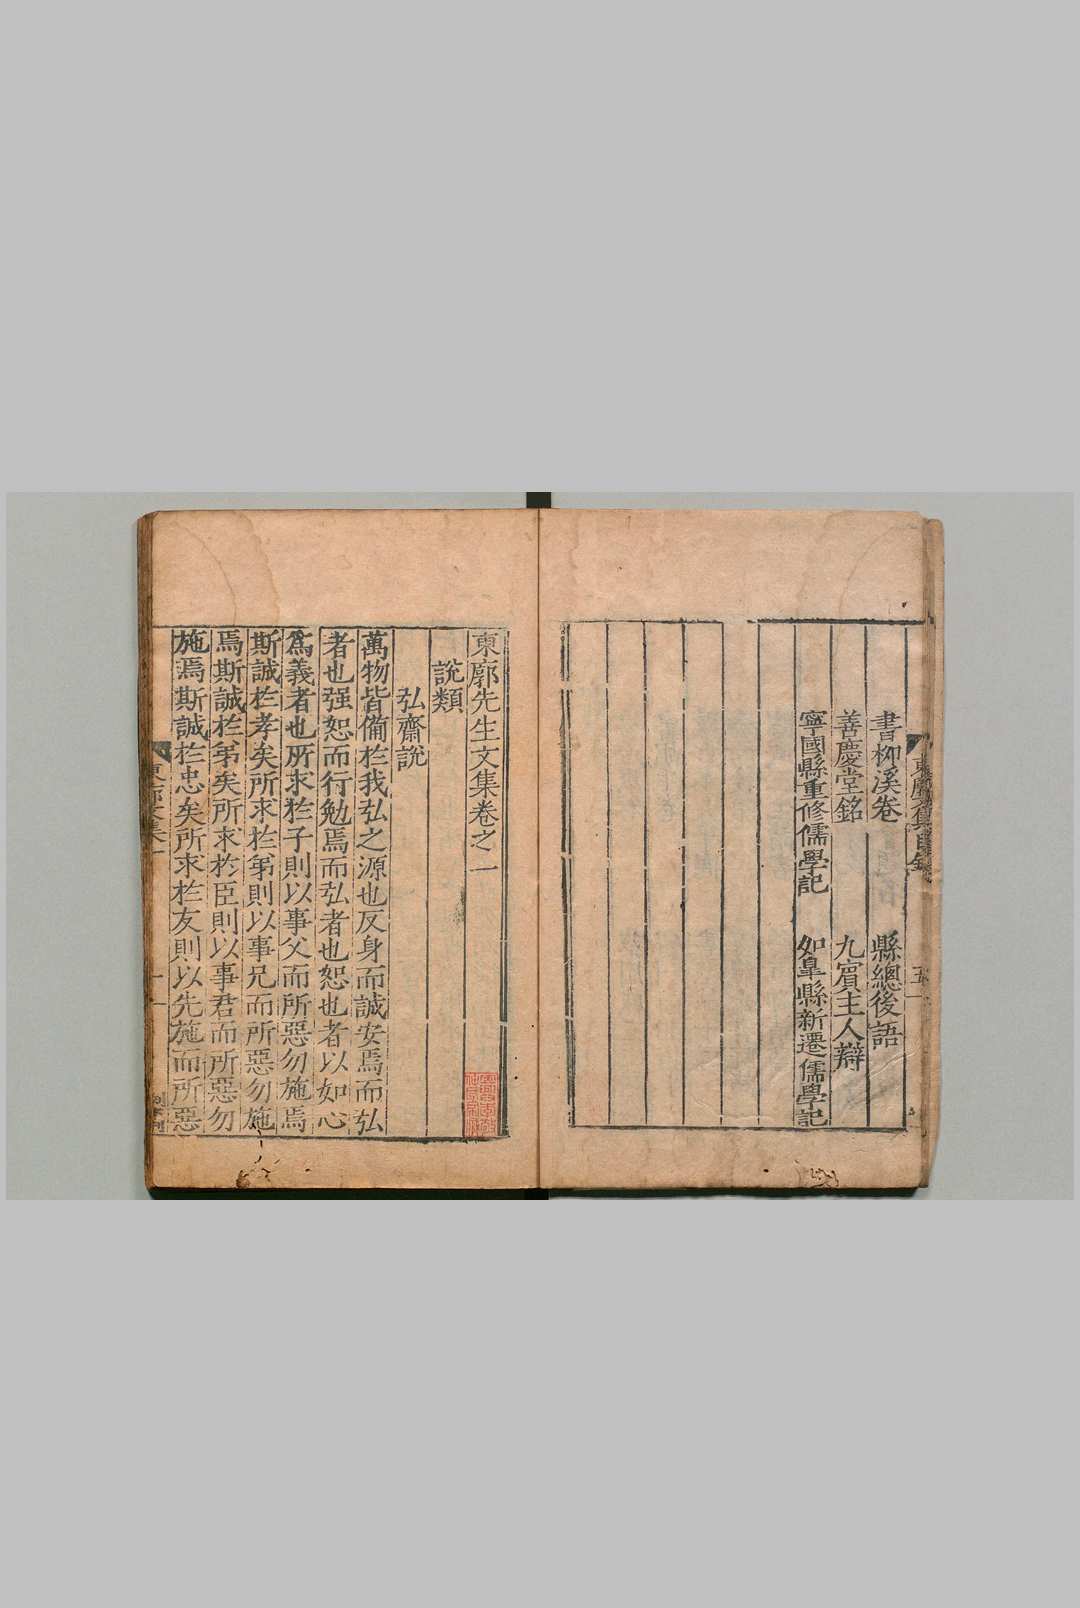 東廓文集目錄
五
書柳溪卷
縣總後語
善慶堂銘
九賓主人辯
寧國縣重修儒學記
如皐縣新遷儒學記
東廓先生文集卷之一
說類
弘齋說
萬物皆備於我弘之源也反身而誠安焉而弘
者也强恕而行勉焉而弘者也恕也者以如心
爲義者也所求於子則以事父而所惡勿施焉
斯誠於孝矣所求於弟則以事兄而所惡勿施
焉斯誠於弟矣所求於臣則以事君而所惡勿
施焉斯誠於忠矣所求於友則以先施而所惡
東廓文集一
一